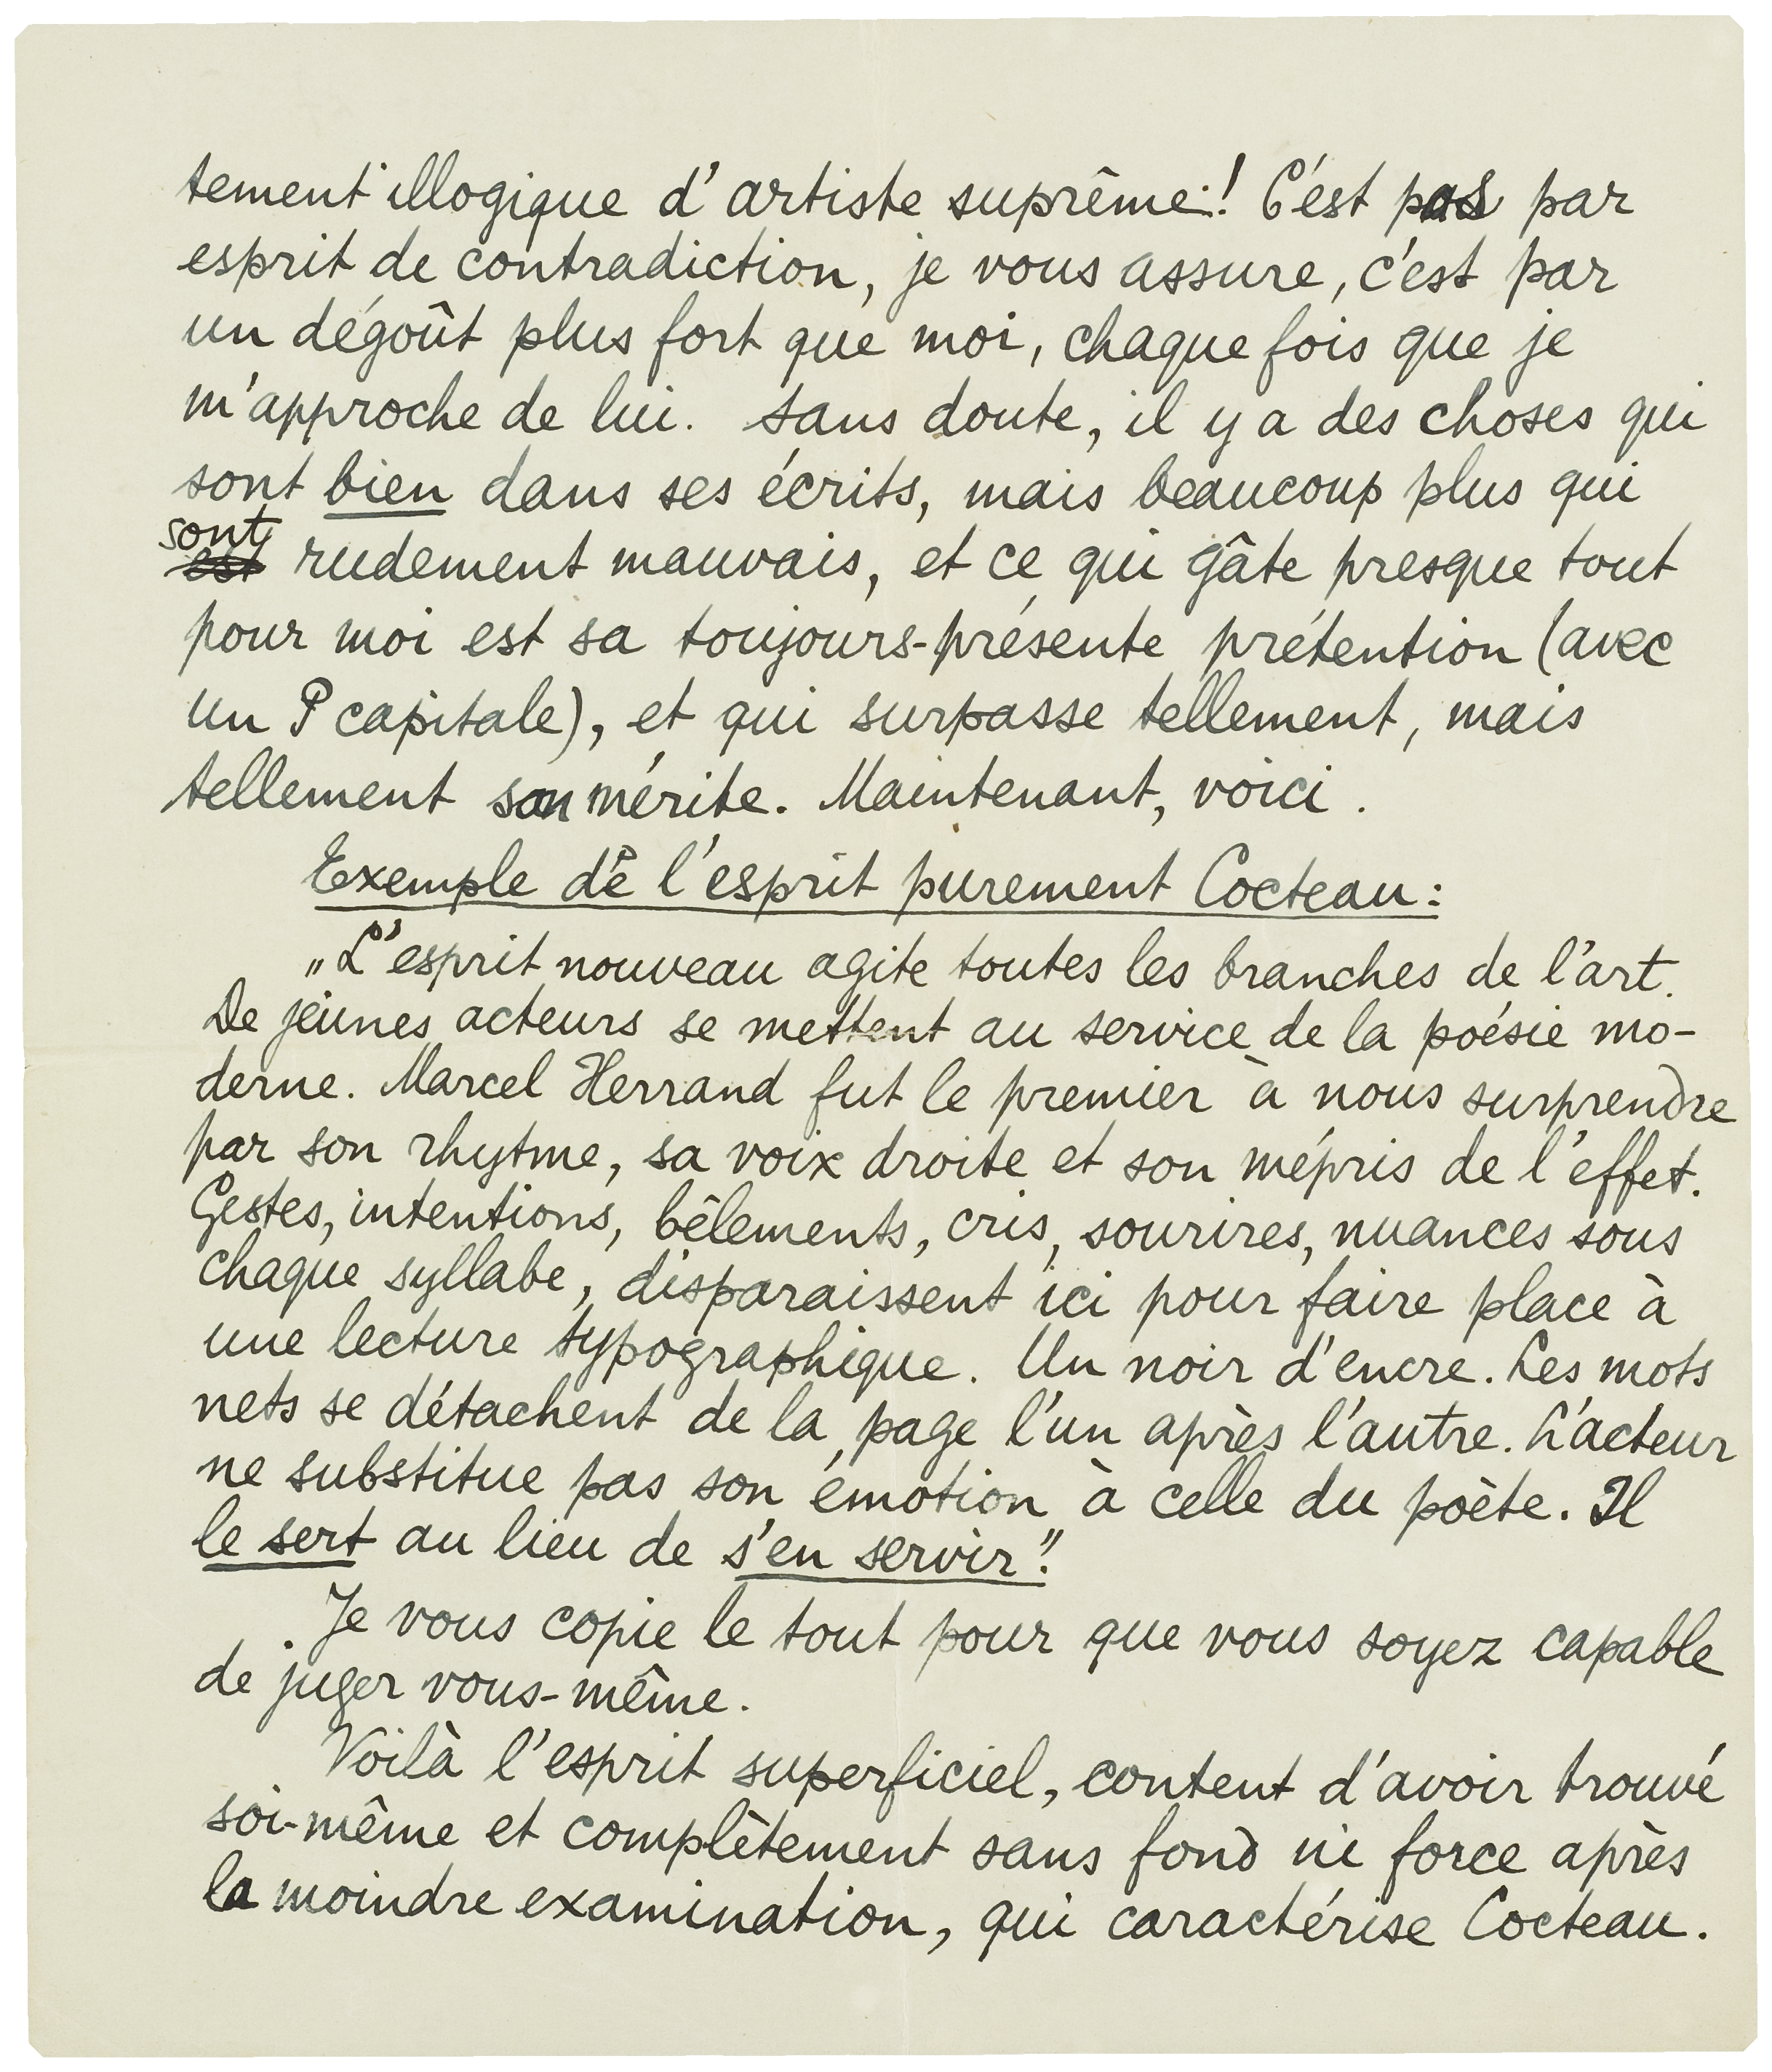 tement illogique d'artiste suprême! C'est pas par
esprit de contradiction, je vous assure, c'est par
un dégoût plus fort que moi, chaque fois que je
m'approche de lui. Sans doute, il y a des choses qui
sont bien dans ses écrits, mais beaucoup plus qui
sont
est rudement mauvais, et ce qui gâte presque tout
pour moi est sa toujours-présente prétention (avec
un P capitale), et qui surpasse tellement, mais
tellement son mérite. Maintenant, voici.
Exemple de l'esprit purement Cocteau:
„L'esprit nouveau agite toutes les branches de l'art.
De jeunes acteurs se mettent au service de la poésie mo-
derne. Marcel Herrand fut le premier à nous surprendre
par son rhytme, sa voix droite et son mépris de l'effet.
Gestes, intentions, bêlements, cris, sourires, nuances sous
chaque syllabe, disparaissent ici pour faire place à
une lecture typographique. Un noir d'encre. Les mots
nets se détachent de la page l'un après l'autre. L'acteur
ne substitue pas son émotion à celle du poète. Il
le sert au lieu de s'en servir".
Je vous copie le tout pour que vous soyez capable
de juger vous-même.
Voilà l'esprit superficiel, content d'avoir trouvé
soi-même et complètement sans fond ni force après
la moindre examination, qui caractérise Cocteau.